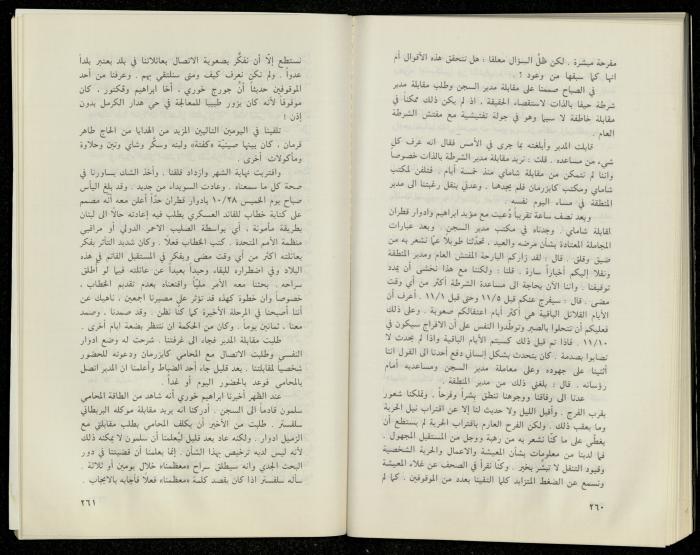 مفرحة مبشرة . لكن ظلّ السؤال معلقا : هل نتحقق هذه الأقوال أم
انها كما سبقها من وعود ؟ .
في الصباح صممنا على مقابلة مدير السجن وطلب مقابلة مدير
شرطة حيفا بالذات لاستقصاء الحقيقة . اذ لم يكن ذلك ممكناً في
مقابلة خاطفة لا سيما وهو في جولة تفتيشية مع مفتش الشرطة
العام .
قابلت المدير وأبلغته بما جرى في الأمس فقال انه عرف كل
شيء من مساعده . قلت : نريد مقابلة مدير الشرطة بالذات خصوصاً
واننا لم نتمكن من مقابلة شاماي منذ خمسة أيام . فتلفن لمكتب
شاماي ومكتب كابزرمان فلم يجدهما . وعدني بنقل رغبتنا الى مدير
المنطقة في مساء اليوم نفسه .
وبعد نصف ساعة تقريباً دُعيت مع مؤيد ابراهيم وادوار قطران
لمقابلة شاماي . وجدناه في مكتب مدير السجن . وبعد عبارات
المجاملة المعتادة بشأن مرضه والعيد . تحدّثنا طويلاً عمّا نشعر به من
ضيق وقلق . قال : لقد زاركم البارحة المفتش العام ومدير المنطقة
ونقلا إليكم أخباراً سارة . قلنا : ولكننا مع هذا نخشى أن يمدد
توقيفنا . واننا الآن بحاجة الى مساعدة الشرطة أكثر من أي وقت
مضى . قال : سيفرج عنكم قبل ١١/٥ وحتى قبل ١١/١ . أعرف أن
الأيام القلائل الباقية هي أكثر أيام اعتقالكم صعوبة . وعلى ذلك
فعليكم أن تتحلوا بالصبر وتوطّدوا النفس على أن الافراج سيكون في
١١/١٠ . فاذا تم قبل ذلك كسبتم الأيام الباقية واذا لم يحدث لا
تصابوا بصدمة . كان يتحدث بشكل إنساني دفع أحدنا الى القول اننا
أثنينا على جهوده وعلى معاملة مدير السجن ومساعديه أمام
رؤسائه . قال : بلغني ذلك من مدير المنطقة .
عدنا الى رفاقنا ووجوهنا تنطق بشراً وفرحاً . وتملكنا شعور
بقرب الفرج . وأقبل الليل ولا حديث لنا إلا عن اقتراب نيل الحرية
وما يعقب ذلك . ولكن الفرح العارم باقتراب الحرية لم يستطع أن
يغطّي على ما كنّا نشعر به من رهبة ووجل من المستقبل المجهول .
فما لدينا من معلومات بشأن المعيشة والاعمال والحرية الشخصية
وقيود التنقل لا تبشّر بخير . وكنّا نقرأ في الصحف عن غلاء المعيشة
ونسمع عن الضغط المتزايد كلما التقينا بعدد من الموقوفين . كما لم
٢٦٠
نستطع إلّا أن نفكّر بصعوبة الاتصال بعائلاتنا في بلد يعتبر بلداً
عدواً . ولم نكن نعرف كيف ومتى سنلتقي بهم . وعرفنا من أحد
الموقوفين حديثاً أنّ جورج خوري ، أخا ابراهيم وفكتور ، كان
موقوفاً لأنه كان يزور طبيبا للمعالجة في حي هدار الكرمل بدون
إذن !
تلقينا في اليومين التاليين المزيد من الهدايا من الحاج طاهر
قرمان ، كان بينها صينيّة «كفتة» ولبنه وسكر وشاي وتين وحلاوة
ومأكولات أخرى .
واقتربت نهاية الشهر وازداد قلقنا . وأخذ الشك يساورنا في
صحة كل ما سمعناه . وعادت السويداء من جديد . وقد بلغ اليأس
صباح يوم الخميس ١٠/٢٨ بادوار قطران حدّاً أعلن معه أنه مصمم
على كتابة خطاب للقائد العسكري يطلب فيه إعادته حالا الى لبنان
بطريقة مأمونة ، أي بواسطة الصليب الاحمر الدولي أو مراقبي
منظمة الأمم المتحدة . كتب الخطاب فعلاً . وكان شديد التأثر بفكر
بعائلته أكثر من أي وقت مضى ويفكر في المستقبل القاتم في هذه
البلاد وفي اضطراره للبقاء وحيداً بعيداً عن عائلته فيما لو أطلق
سراحه . بحثنا معه الأمر مليّاً واقنعناه بعدم تقديم الخطاب ،
خصوصاً وان خطوة كهذه قد تؤثر على مصيرنا اجمعين ، ناهيك عن
أننا أصبحنا في المرحلة الأخيرة كما كنا نظن . وقد صمدنا ، وصمد
معنا ، ثمانين يوماً . وكان من الحكمة ان ننتظر بضعة ايام أخرى .
طلبت مقابلة المدير فجاء الى غرفتنا . شرحت له وضع ادوار
النفسي وطلبت الاتصال مع المحامي كايزرمان ودعوته للحضور
شخصياً لمقابلتنا . بعد قليل جاء أحد الضباط وأعلمنا ان المدير اتصل
بالمحامي فوعد بالحضور اليوم أو غداً .
عند الظهر أخبرنا ابراهيم خوري أنه شاهد من الطاقة المحامي
سلمون قادماً الى السجن . أدركنا انه يريد مقابلة موكله البريطاني
سلفستر . طلبت من الأخير أن يكلف المحامي بطلب مقابلتي مع
الزميل ادوار . ولكنه عاد بعد قليل ليُعلمنا أن سلمون لا يمكنه ذلك
لأنه ليس لديه ترخيص بهذا الشأن . إنما يعلمنا أن قضيتنا في دور
البحث الجدي وانه سيطلق سراح «معظمنا» خلال يومين أو ثلاثة .
سأله سلفستر اذا كان يقصد كلمة «معظمنا» فعلا فأجابه بالايجاب .
٢٦١